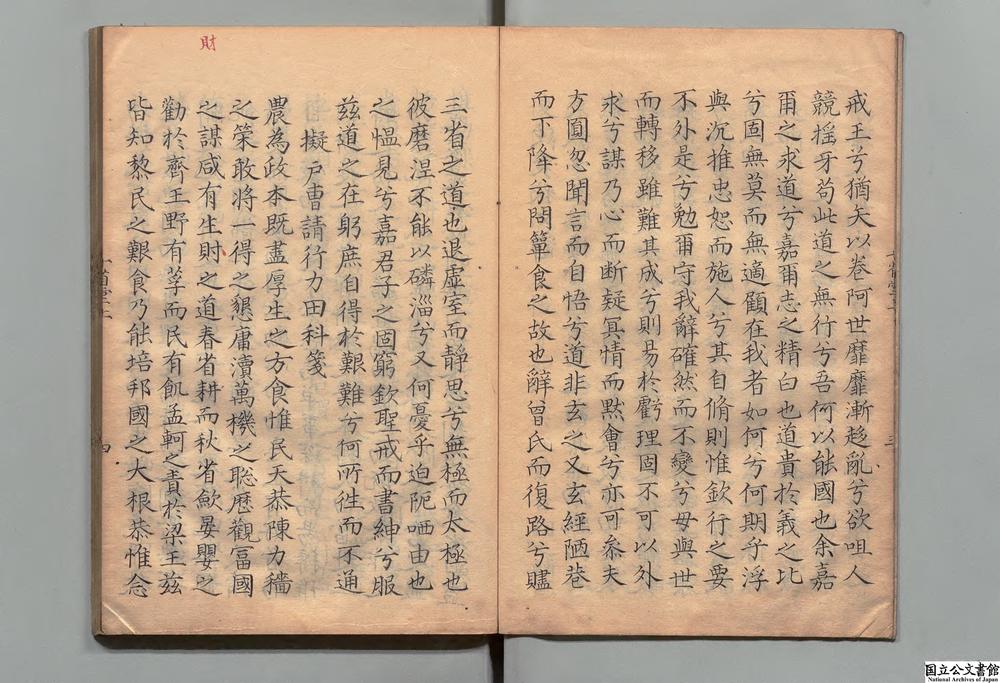 戒王兮猶矢以卷阿世靡靡漸趍亂兮欲咀人
競揺牙苟此道之無行兮吾何以能國也余嘉
爾之求道兮嘉爾志之精白也道貴於義之比
兮固無莫而無適顧在我者如何兮何期乎浮
與沉推忠恕而施人兮其自脩則惟欽行之要
不外是兮勉爾守我辭確然而不變兮毋與世
而轉移雖難其成兮則易於虧理固不可以外
求兮謀乃心而断疑冥情而黙會兮亦可叅夫
方圎忽聞言而自悟兮道非玄之又玄經陋巷
而下降兮問簞食之故也辭曾氏而復路兮賮
三省之道也退虛室而靜思兮無極而太極也
彼磨涅不能以磷淄兮又何憂乎迫阨哂由也
之愠見兮嘉君子之固窮欽聖戒而書紳兮服
兹道之在躬庶自得於艱難兮何所徃而不通
擬戶曹請行力田科箋
農為政本既盡厚生之方食惟民天恭陳力穡
之策敢將一得之懇庸瀆萬機之聡歷觀冨國
之謀咸有生財之道春省耕而秋省歛晏嬰之
勸於齊王野有莩而民有飢孟軻之責於梁王兹
皆知黎民之艱食乃能培邦國之大根恭惟念
財
三
四
国立公文書館
National Archives of Japan